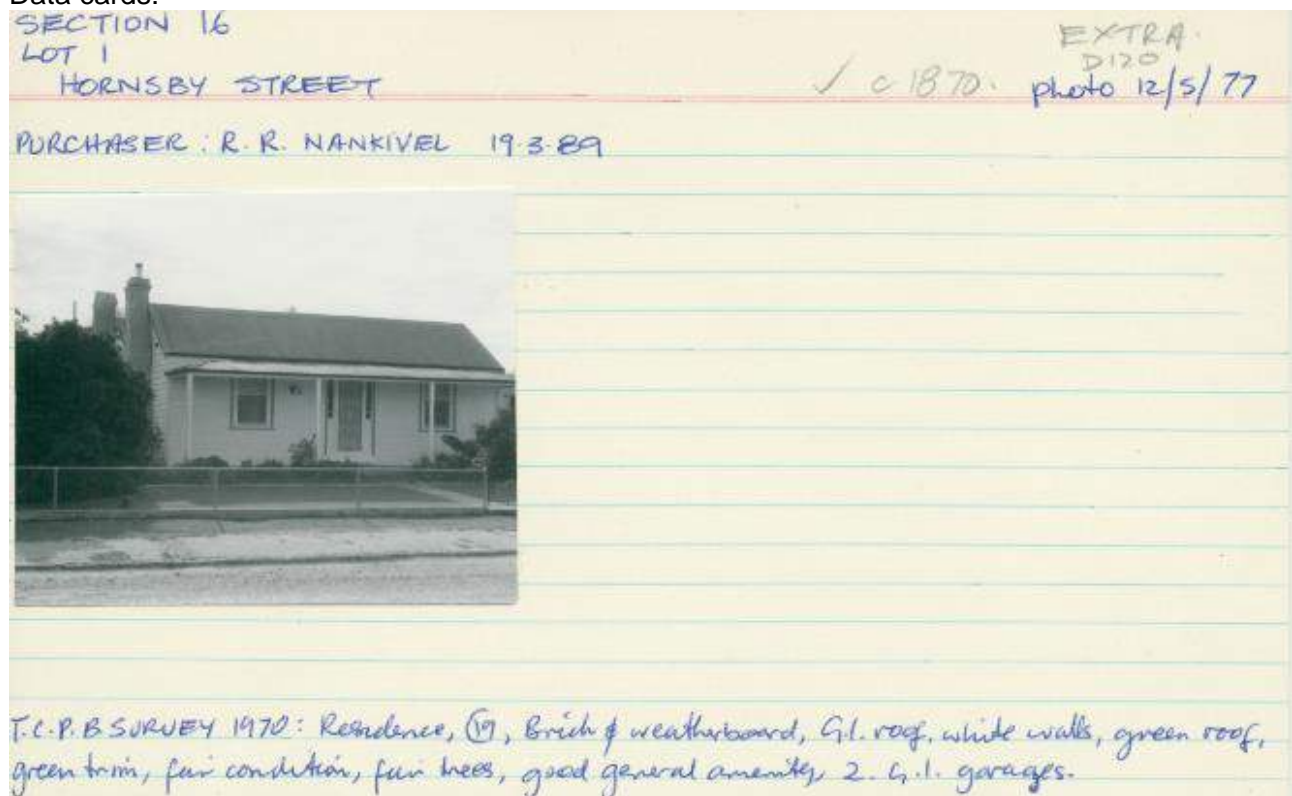 Data cards.
SECTION 16
EXTRA.
LOT 1
D120
HORNSBY STREET
✓ c 1870. photo 12/5/77
PURCHASER: R. R. NANKIVEL 19.3.89
T.C.P.B SURVEY 1970: Residence, 19, Brick & weatherboard, G.I. roof, white walls, green roof,
green trim, fair condition, fair trees, good general amenity, 2. G.I. garages.